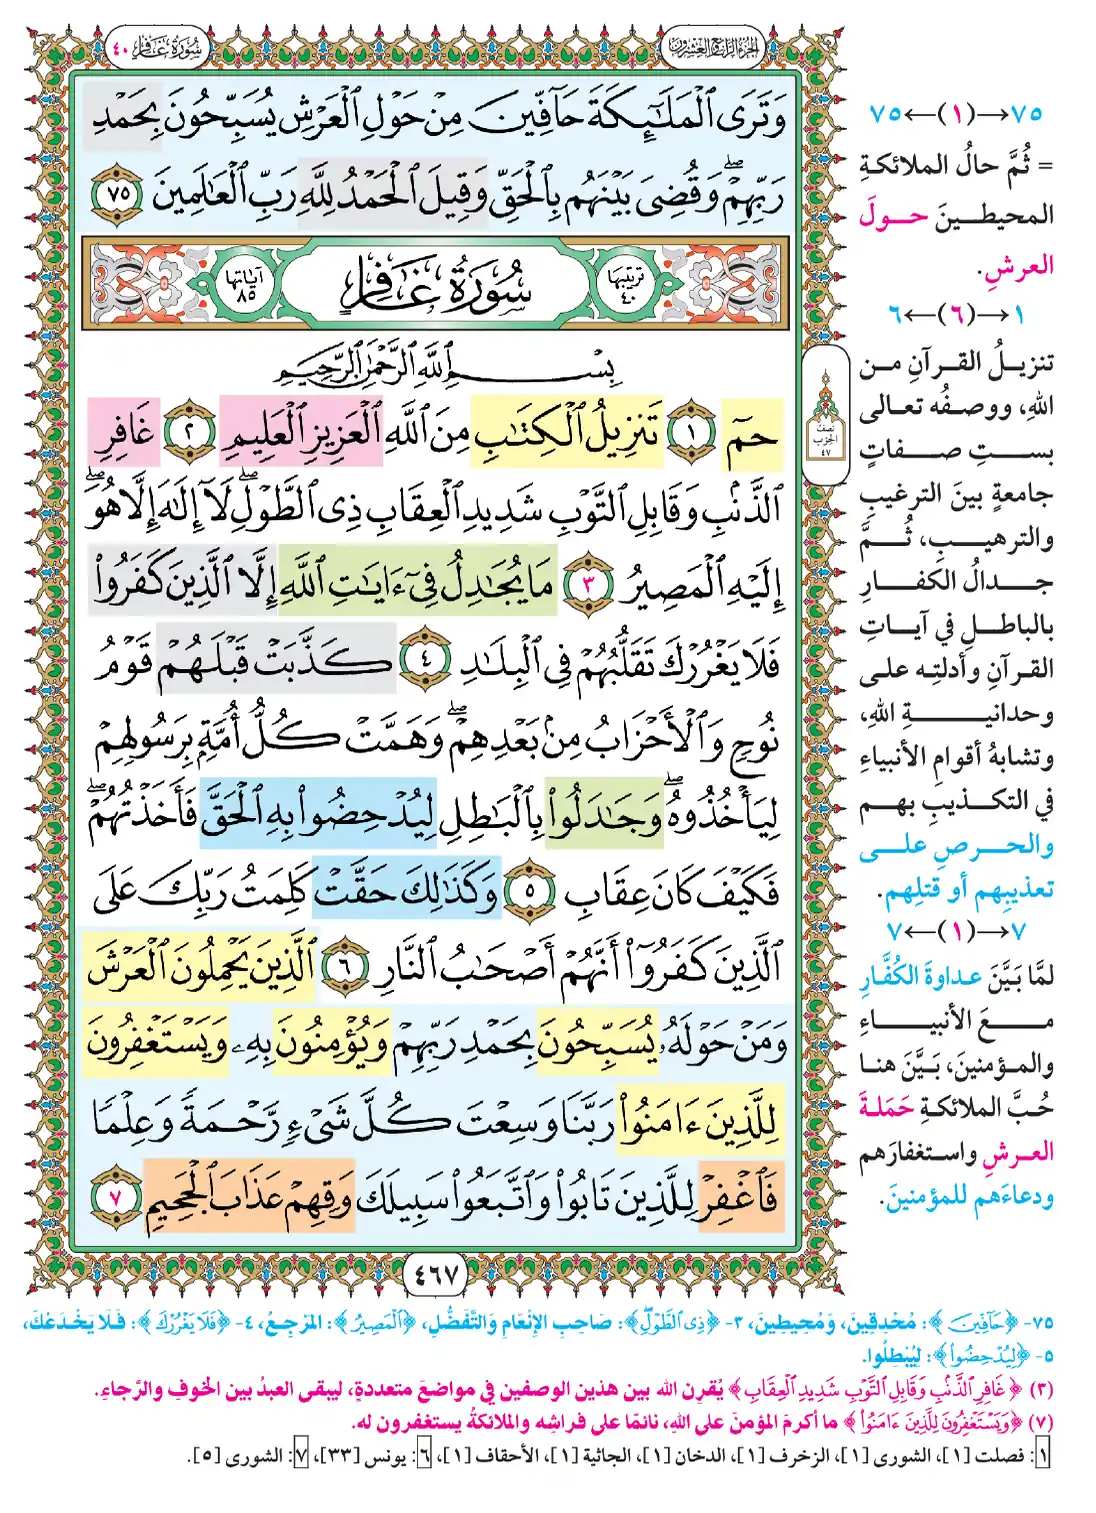 الجزء الرابع والعشرون
سورة غافر ٤٠
وَتَرَى ٱلْمَلَٰٓئِكَةَ حَآفِّينَ مِنْ حَوْلِ ٱلْعَرْشِ يُسَبِّحُونَ بِحَمْدِ
رَبِّهِمْ ۖ وَقُضِىَ بَيْنَهُم بِٱلْحَقِّ وَقِيلَ ٱلْحَمْدُ لِلَّهِ رَبِّ ٱلْعَٰلَمِينَ ٧٥
ترتيبها ٤٠ سُورَةُ غَافِرٍ آياتها ٨٥
بِسْمِ ٱللَّهِ ٱلرَّحْمَٰنِ ٱلرَّحِيمِ
حمٓ ١ تَنزِيلُ ٱلْكِتَٰبِ مِنَ ٱللَّهِ ٱلْعَزِيزِ ٱلْعَلِيمِ ٢ غَافِرِ
ٱلذَّنۢبِ وَقَابِلِ ٱلتَّوْبِ شَدِيدِ ٱلْعِقَابِ ذِى ٱلطَّوْلِ ۖ لَآ إِلَٰهَ إِلَّا هُوَ ۖ
إِلَيْهِ ٱلْمَصِيرُ ٣ مَا يُجَٰدِلُ فِىٓ ءَايَٰتِ ٱللَّهِ إِلَّا ٱلَّذِينَ كَفَرُوا۟
فَلَا يَغْرُرْكَ تَقَلُّبُهُمْ فِى ٱلْبِلَٰدِ ٤ كَذَّبَتْ قَبْلَهُمْ قَوْمُ
نُوحٍ وَٱلْأَحْزَابُ مِنۢ بَعْدِهِمْ ۖ وَهَمَّتْ كُلُّ أُمَّةٍۭ بِرَسُولِهِمْ
لِيَأْخُذُوهُ ۖ وَجَٰدَلُوا۟ بِٱلْبَٰطِلِ لِيُدْحِضُوا۟ بِهِ ٱلْحَقَّ فَأَخَذْتُهُمْ ۖ
فَكَيْفَ كَانَ عِقَابِ ٥ وَكَذَٰلِكَ حَقَّتْ كَلِمَتُ رَبِّكَ عَلَى
ٱلَّذِينَ كَفَرُوٓا۟ أَنَّهُمْ أَصْحَٰبُ ٱلنَّارِ ٦ ٱلَّذِينَ يَحْمِلُونَ ٱلْعَرْشَ
وَمَنْ حَوْلَهُۥ يُسَبِّحُونَ بِحَمْدِ رَبِّهِمْ وَيُؤْمِنُونَ بِهِۦ وَيَسْتَغْفِرُونَ
لِلَّذِينَ ءَامَنُوا۟ رَبَّنَا وَسِعْتَ كُلَّ شَىْءٍ رَّحْمَةً وَعِلْمًا
فَٱغْفِرْ لِلَّذِينَ تَابُوا۟ وَٱتَّبَعُوا۟ سَبِيلَكَ وَقِهِمْ عَذَابَ ٱلْجَحِيمِ ٧
٤٦٧
نصف
الحزب
٤٧
٧٥→(١)←٧٥
= ثُمَّ حالُ الملائكةِ
المحيطينَ حولَ
العرشِ.
١→(٦)←٦
تنزيلُ القرآنِ من
اللهِ، ووصفُه تعالى
بستِ صفاتٍ
جامعةٍ بينَ الترغيبِ
والترهيبِ، ثُمَّ
جدالُ الكفارِ
بالباطلِ في آياتِ
القرآنِ وأدلتِه على
وحدانيةِ اللهِ،
وتشابهُ أقوامِ الأنبياءِ
في التكذيبِ بهم
والحرصِ على
تعذيبِهم أو قتلِهم.
٧→(١)←٧
لمَّا بَيَّنَ عداوةَ الكُفَّارِ
معَ الأنبياءِ
والمؤمنينَ، بَيَّنَ هنا
حُبَّ الملائكةِ حَمَلةَ
العرشِ واستغفارَهم
ودعاءَهم للمؤمنينَ.
٧٥- ﴿حَآفِّينَ﴾: مُحْدِقِينَ، وَمُحِيطِينَ، ٣- ﴿ذِى ٱلطَّوْلِ﴾: صَاحِبِ الإِنْعَامِ وَالتَّفَضُّلِ، ﴿ٱلْمَصِيرُ﴾: المَرْجِعُ، ٤- ﴿فَلَا يَغْرُرْكَ﴾: فَلَا يَخْدَعْكَ،
٥- ﴿لِيُدْحِضُوا۟﴾: لِيُبْطِلُوا.
(٣) ﴿غَافِرِ ٱلذَّنۢبِ وَقَابِلِ ٱلتَّوْبِ شَدِيدِ ٱلْعِقَابِ﴾ يُقرِن الله بين هذين الوصفين في مواضعَ متعددةٍ، ليبقى العبدُ بين الخوفِ والرَّجاءِ.
(٧) ﴿وَيَسْتَغْفِرُونَ لِلَّذِينَ ءَامَنُوا۟﴾ ما أكرمَ المؤمنَ على اللهِ، نائمًا على فراشِه والملائكةُ يستغفرون له.
١: فصلت [١]، الشورى [١]، الزخرف [١]، الدخان [١]، الجاثية [١]، الأحقاف [١]، ٦: يونس [٣٣]، ٧: الشورى [٥].